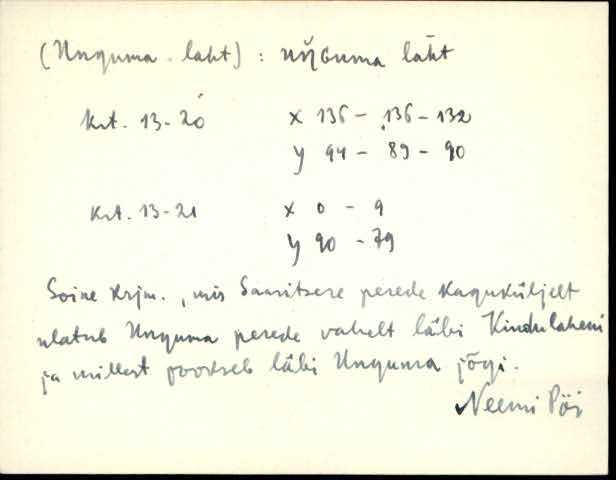 (Unguma laht) : uŋguma laht
Krt. 13-20 x 136 - 136 - 132
y 94 - 89 - 90
Krt. 13-21 x 0 - 9
y 90 - 79
Soine krjm., mis Saaritsere perede kaguküljelt
ulatub Unguma perede vahelt läbi Kindulaheni
ja millest voolseb läbi Unguma jõgi.
Neemi Pöi